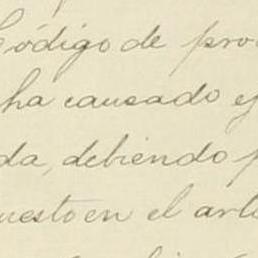 Código de pro
ha causado ej
da, debiendo p
uesto en el art